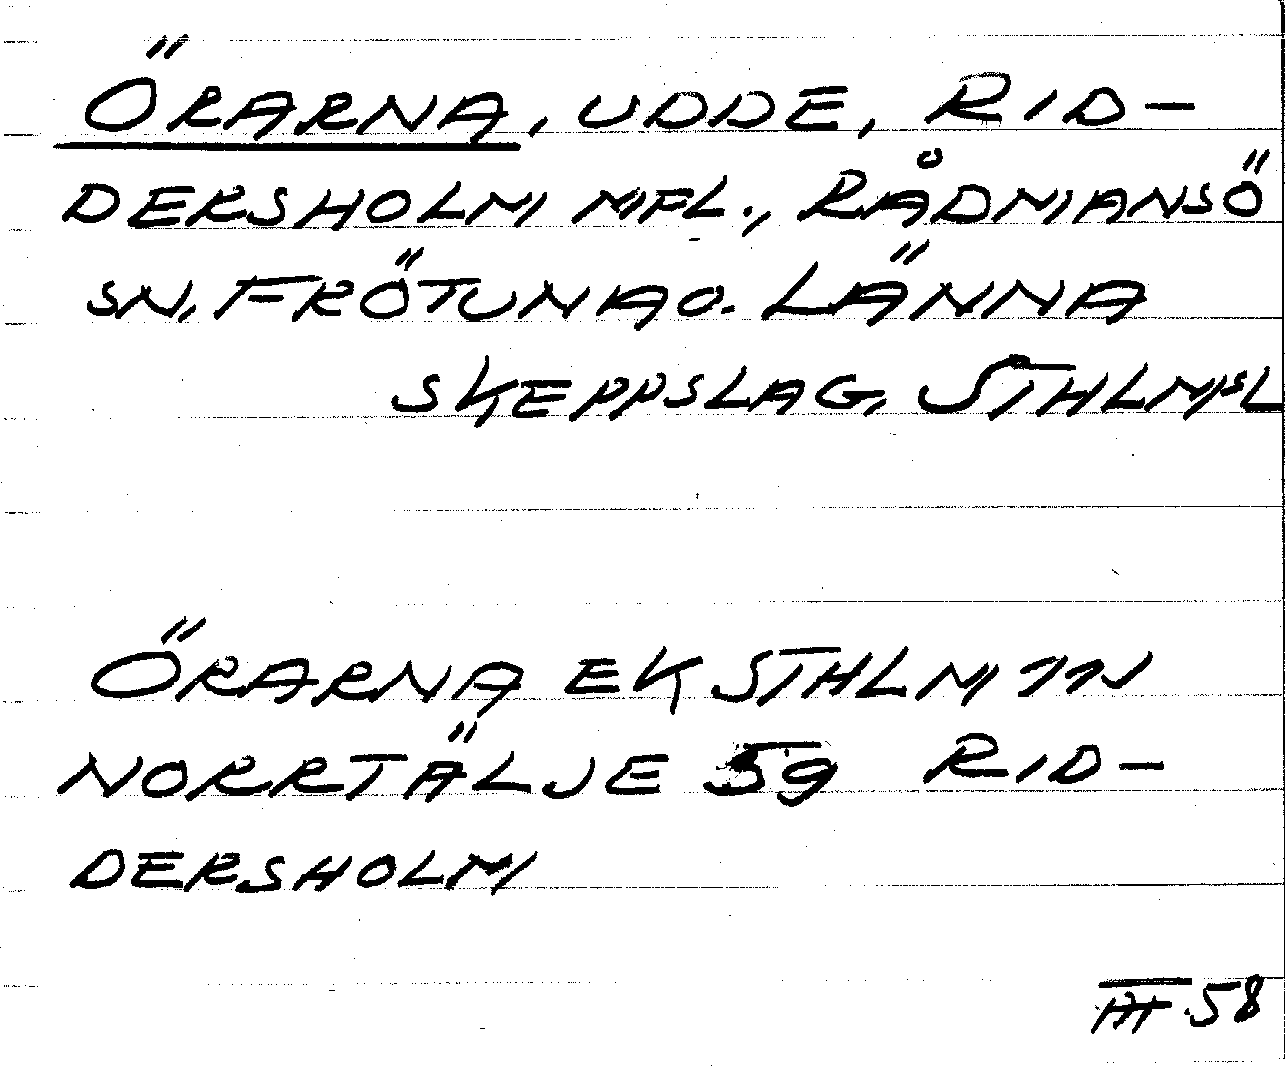 ÖRARNA, UDDE, RID-
DERSHOLM MFL., RÅDMANSÖ
SN, FRÖTUNA O. LÄNNA
SKEPPSLAG, STHLMSL
ÖRARNA EK STHLM 11N
NORRTÄLJE 59 RID-
DERSHOLM
58